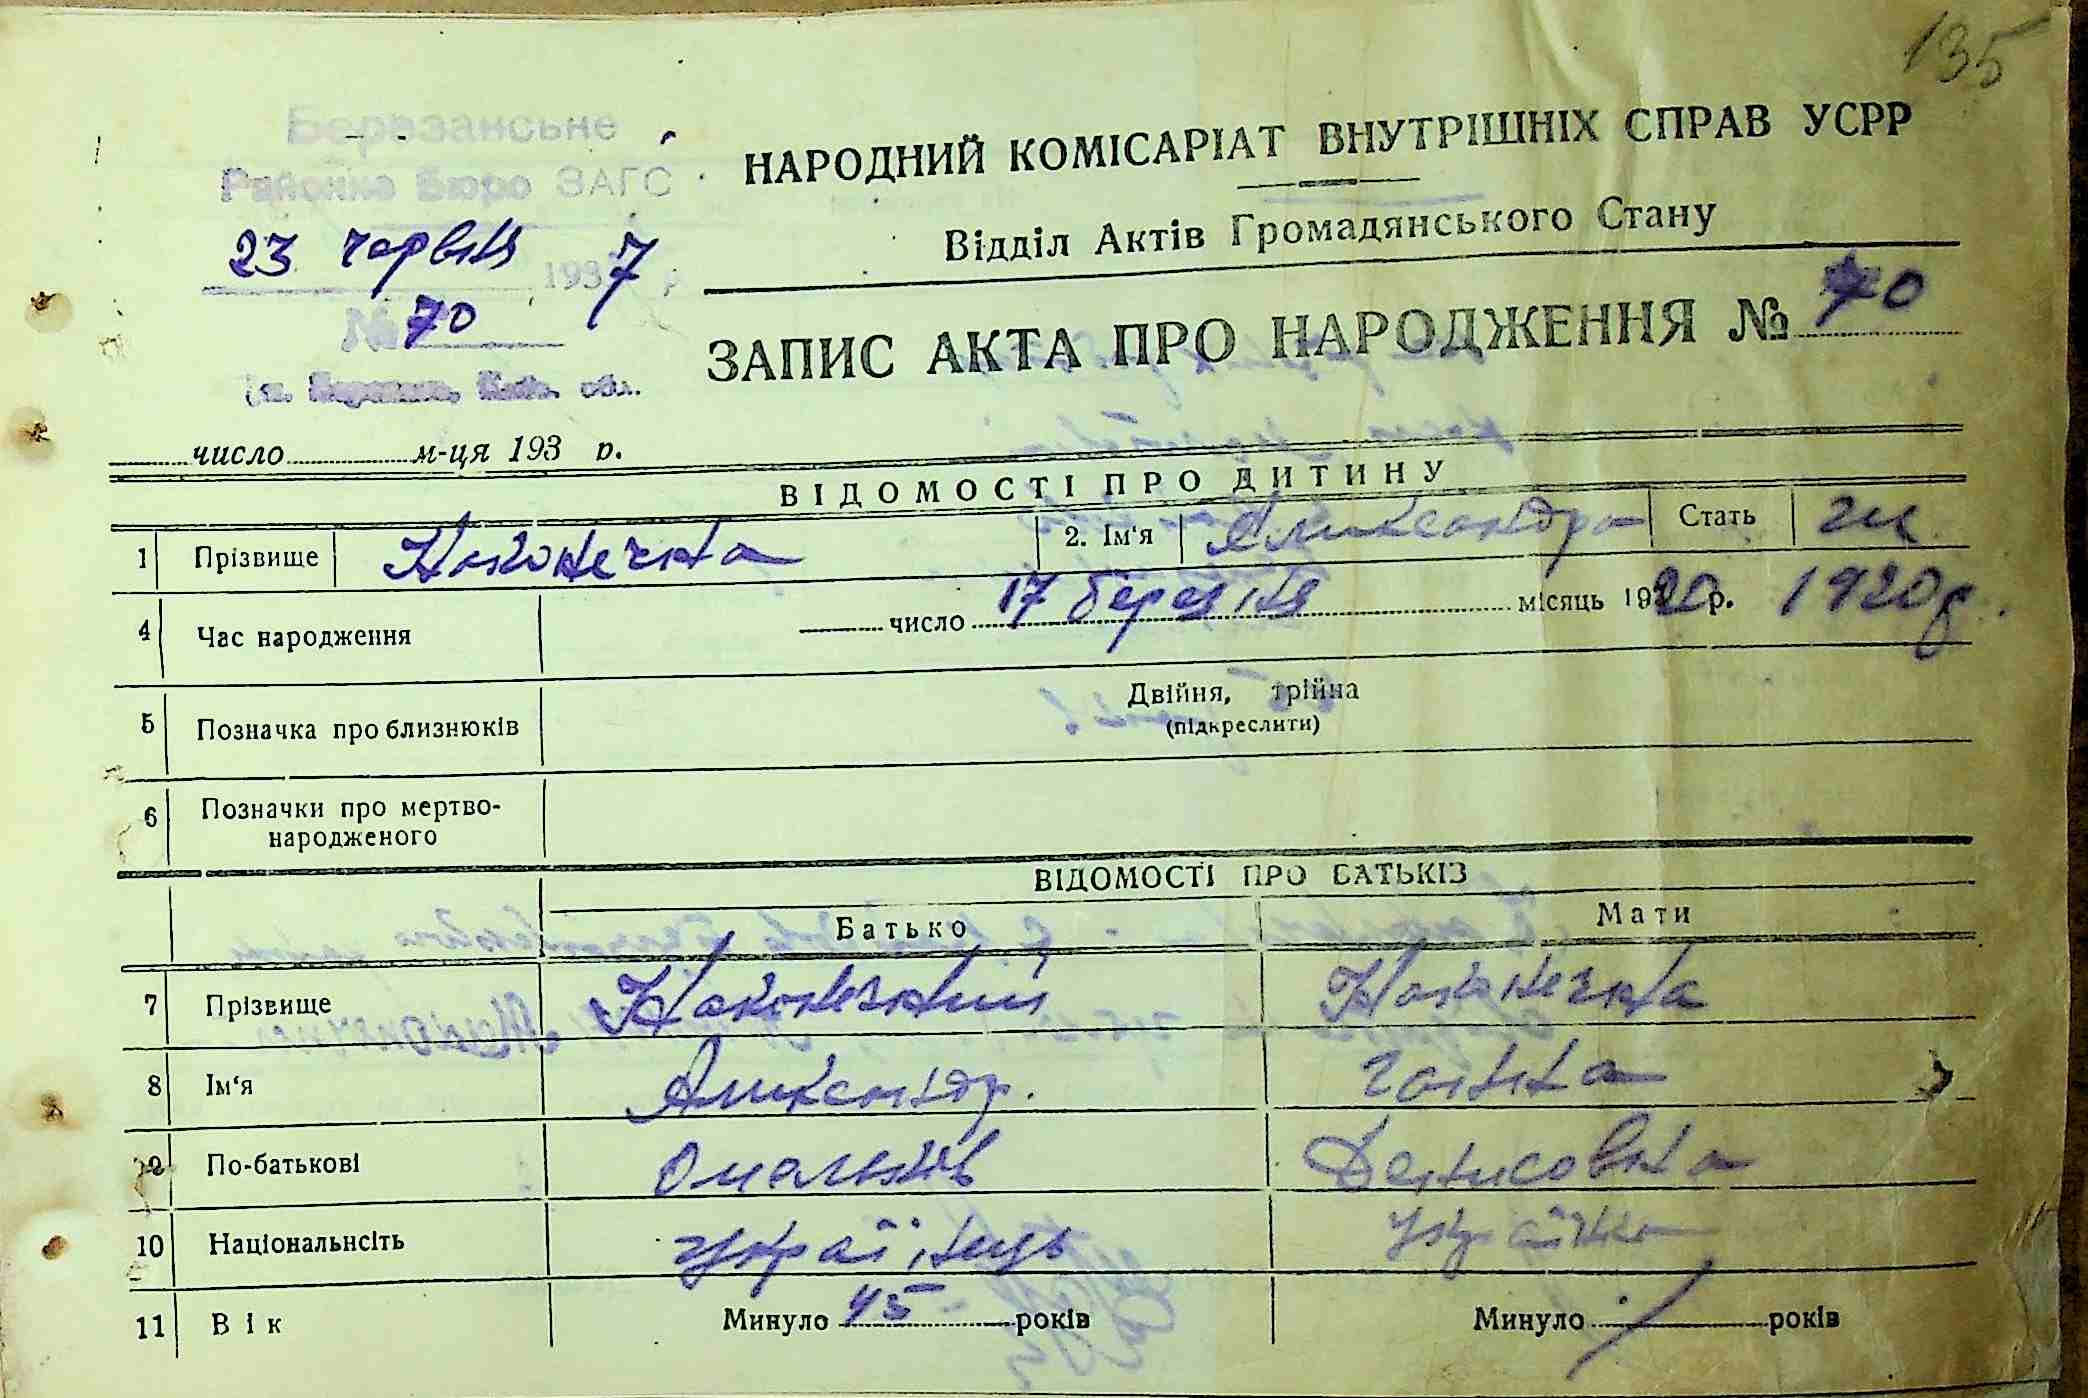 135
Березанське
Районне Бюро ЗАГС
23 червня 1937 р
№ 70
НАРОДНИЙ КОМІСАРІАТ ВНУТРІШНІХ СПРАВ УСРР
Відділ Актів Громадянського Стану
ЗАПИС АКТА ПРО НАРОДЖЕННЯ № 70
число м-ця 193 р.
ВІДОМОСТІ ПРО ДИТИНУ
1 Прізвище Наконечна 2. Ім'я Александра Стать ж
4 Час народження число 17 березня місяць 1920 р. 1920 р.
5 Позначка про близнюків Двійня, трійна
(підкреслити)
6 Позначки про мертво-
народженого
ВІДОМОСТІ ПРО БАТЬКІВ
Батько Мати
7 Прізвище Наконечний Наконечна
8 Ім'я Александр. Ганна
9 По-батькові Омельков Денисовна
10 Національнсіть Українець Українка
11 Вік Минуло 45 років Минуло / років